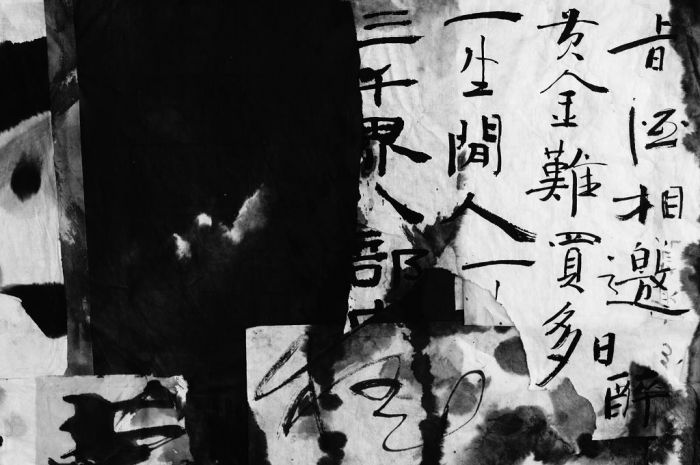 旨酒相邀日醉
黄金難買多
一生閒人一
三千界八部